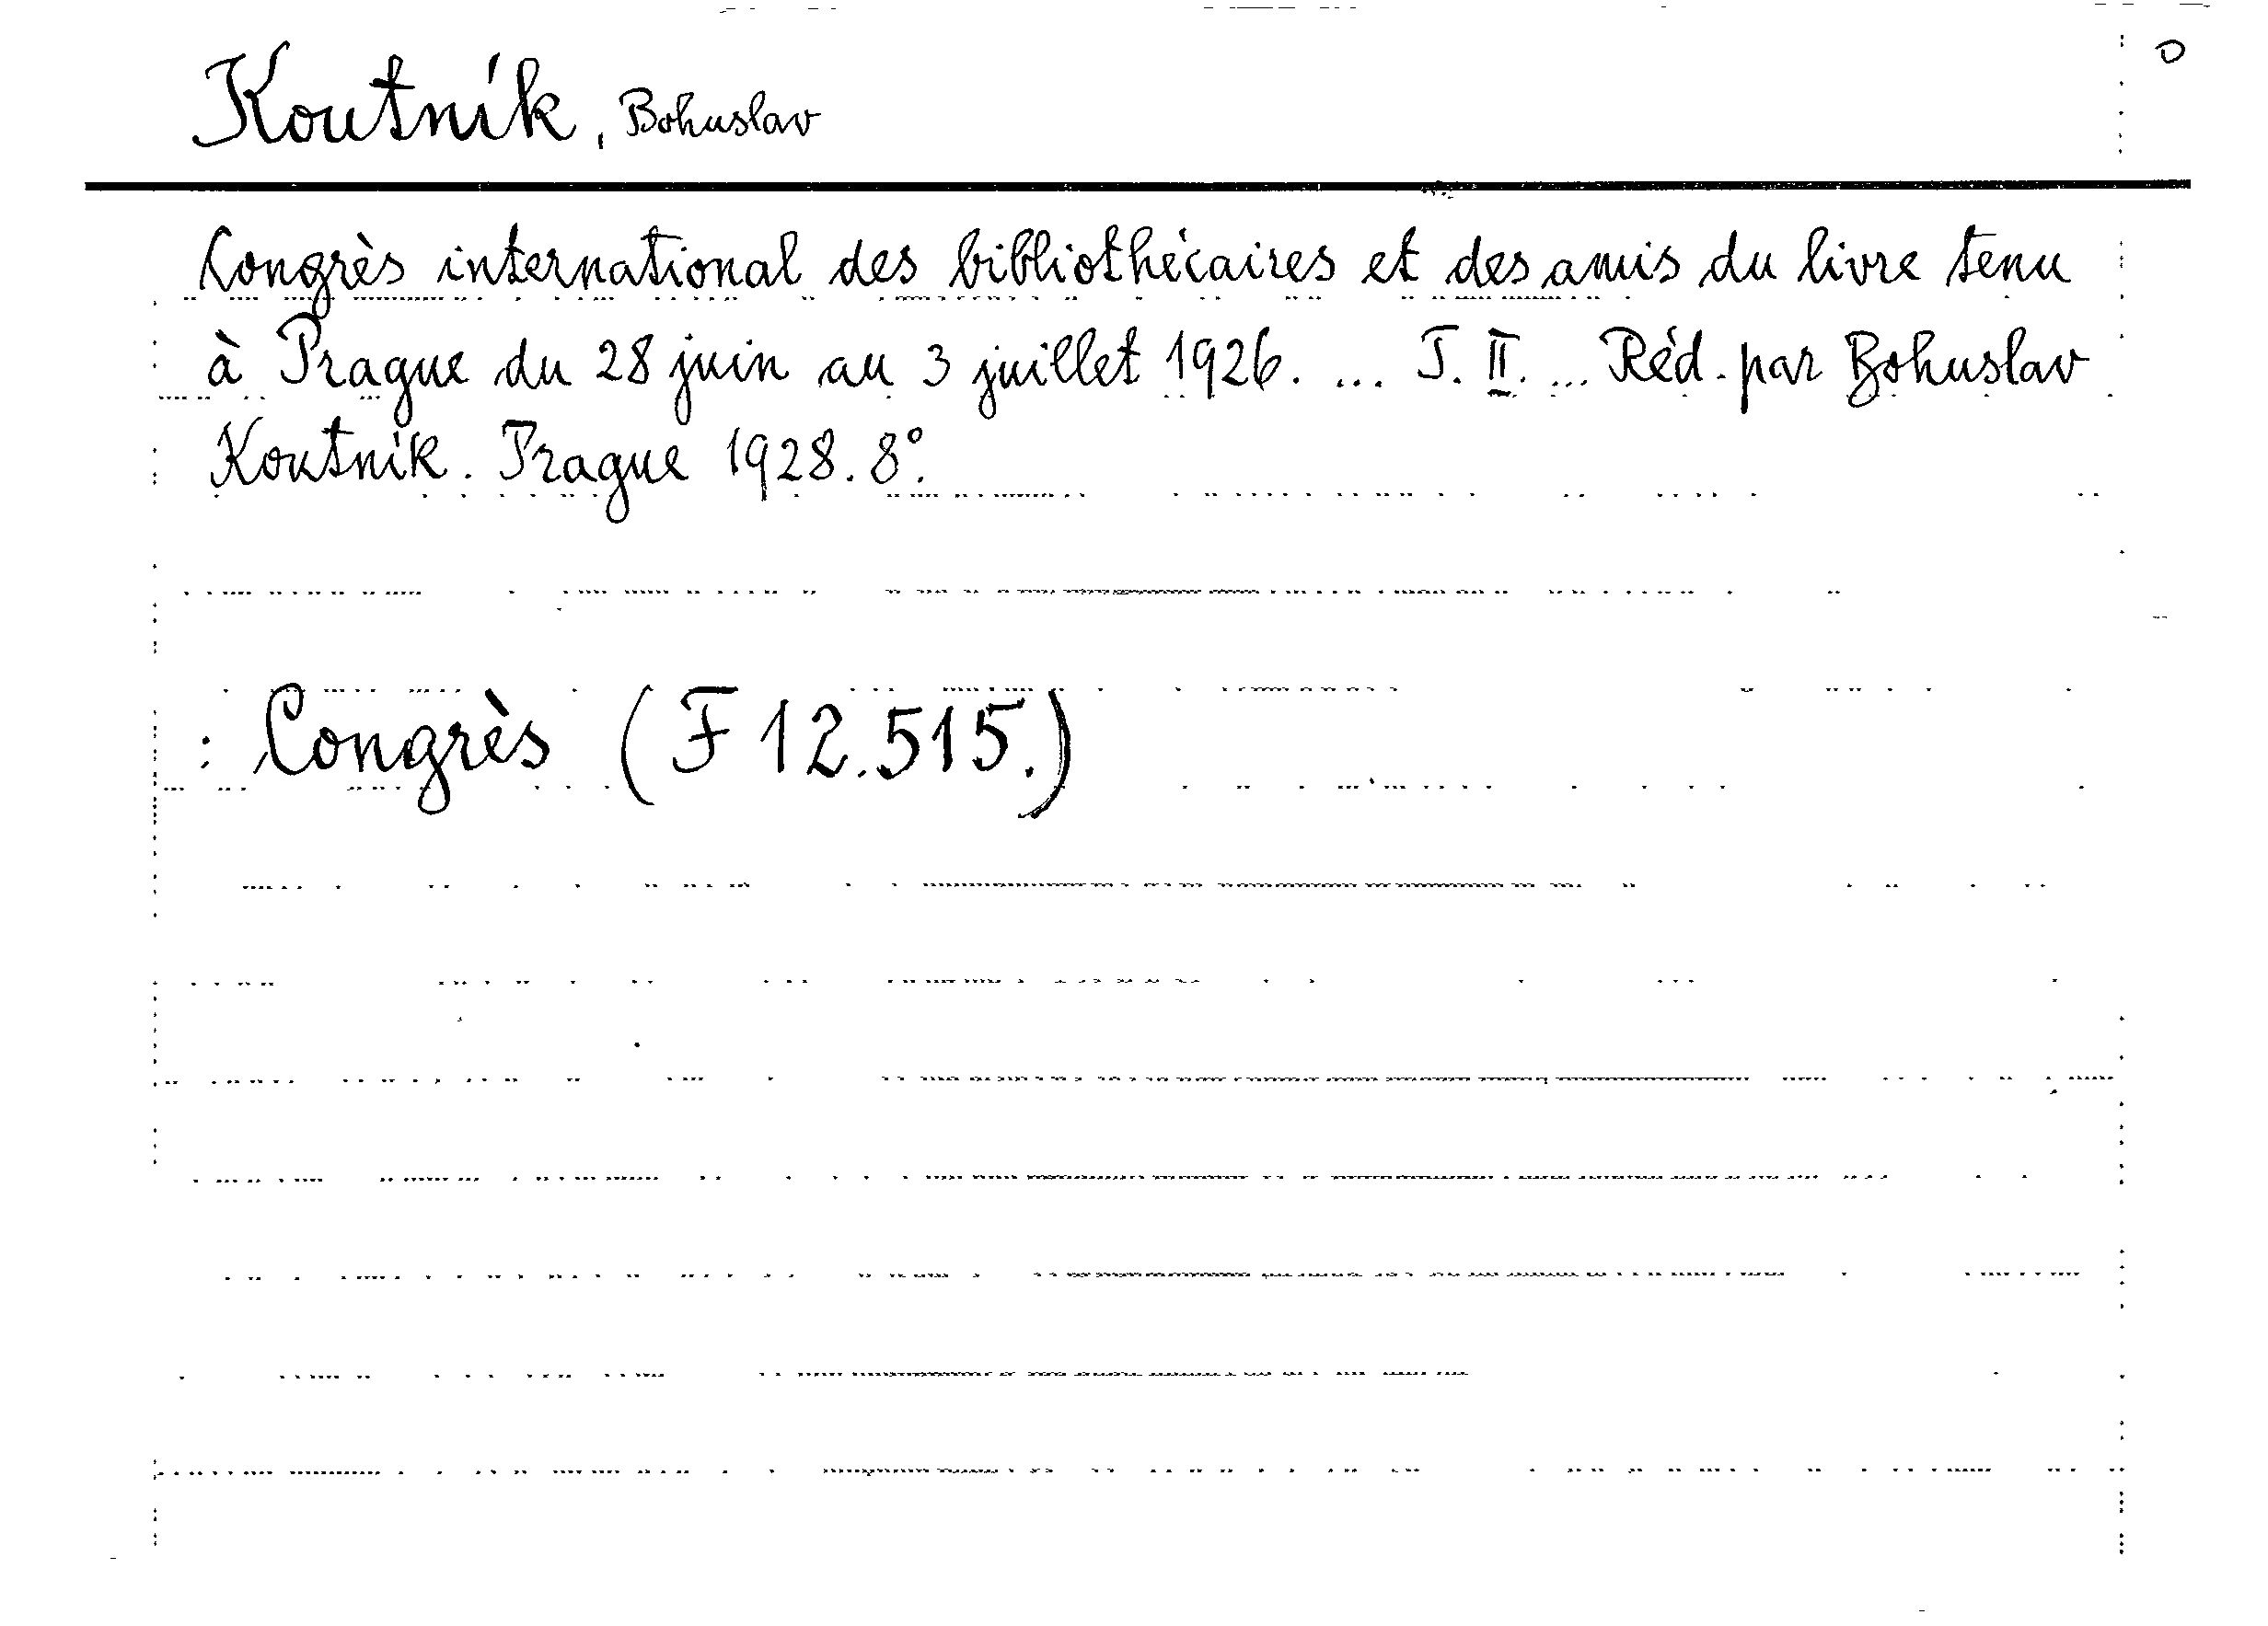 Koutník, Bohuslav
Congrès international des bibliothécaires et des amis du livre tenu
à Prague du 28 juin au 3 juillet 1926. ... T. II. ... Réd. par Bohuslav
Koutník. Prague 1928. 8°.
: Congrès (F 12.515.)